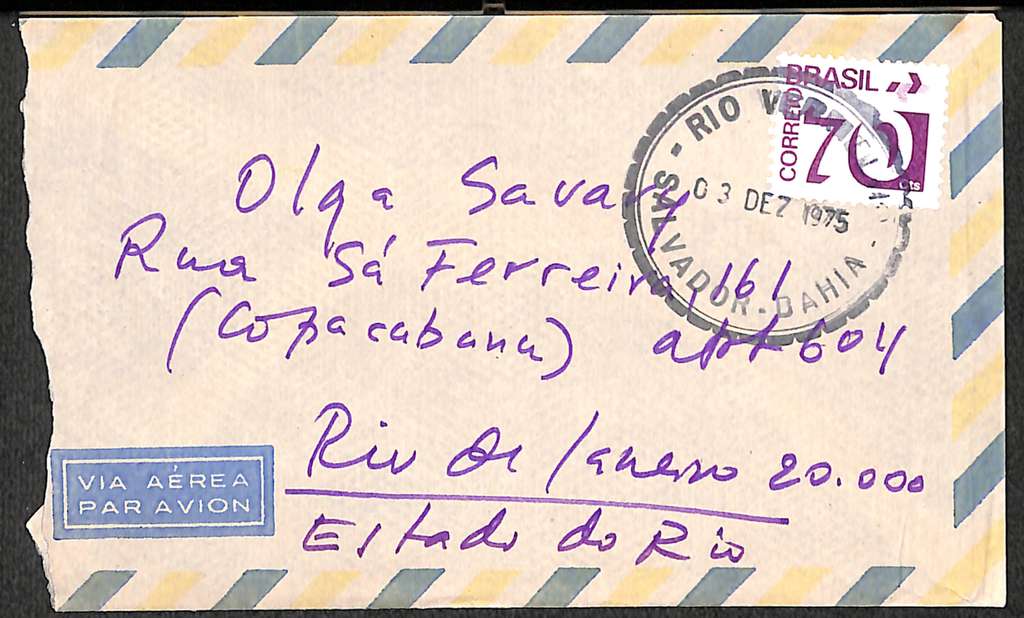 BRASIL
CORREIO
70
cts
RIO VERMELHO - SALVADOR - BAHIA -
03 DEZ 1975
Olga Savary
Rua Sá Ferreira, 161
(Copacabana) apt 604
Rio de Janeiro 20.000
Estado do Rio
VIA AÉREA
PAR AVION